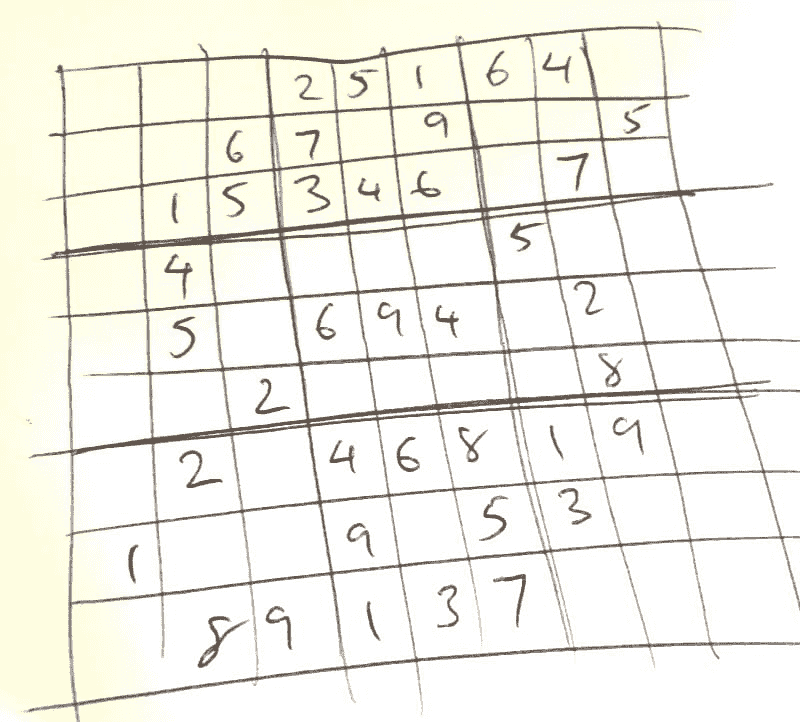 2 5 1 6 4
6 7 9 5
1 5 3 4 6 7
4 5
5 6 9 4 2
2 8
2 4 6 8 1 9
1 9 5 3
8 9 1 3 7